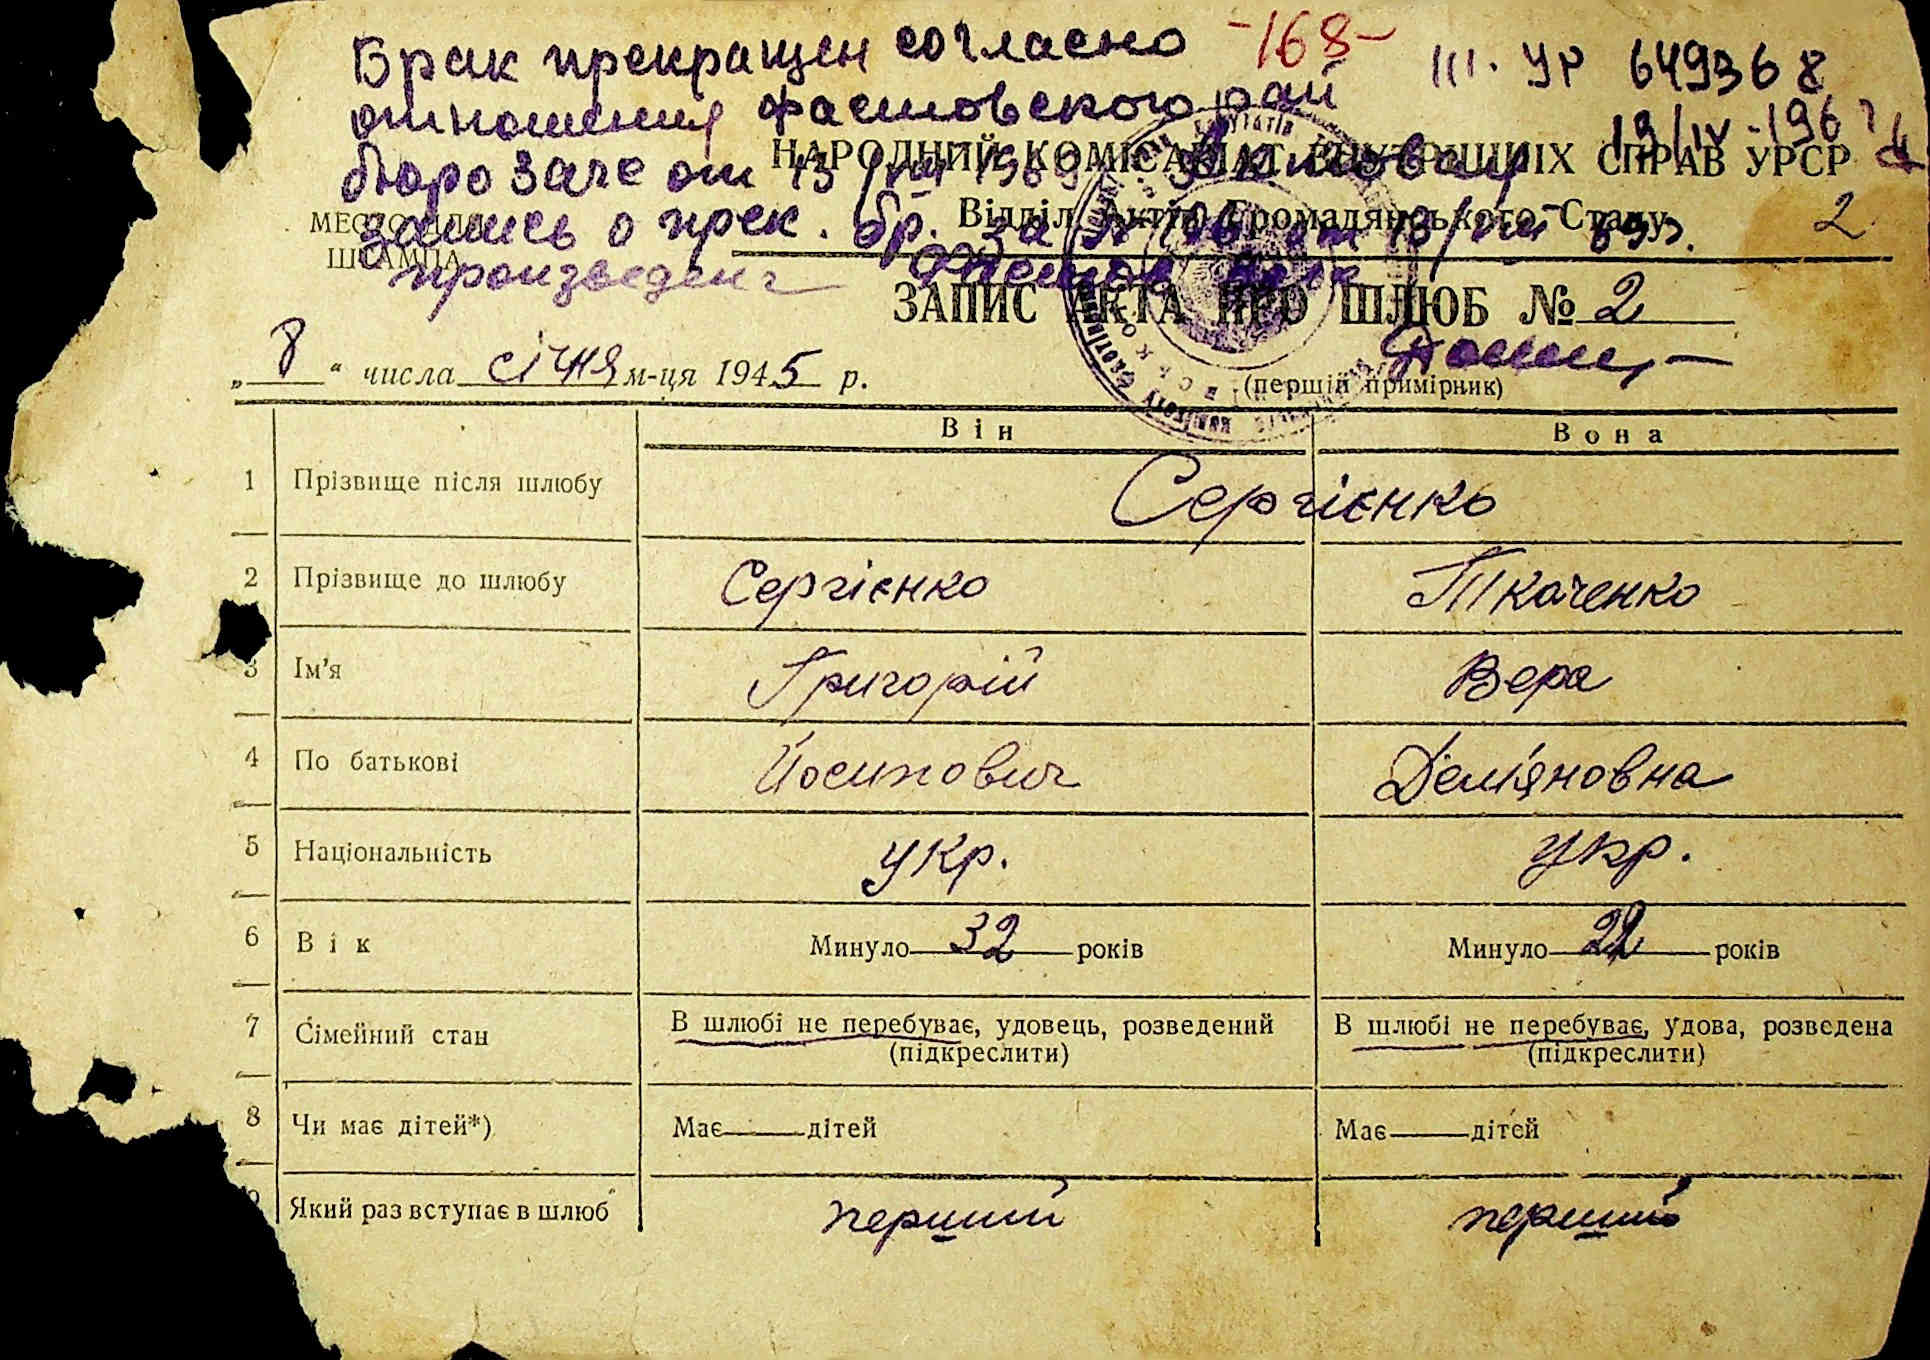 Брак прекращен согласно -168- III. УР 649368
отношения фастовского рай 19/IV-196
НАРОДНИЙ КОМІСАРІАТ ВНУТРІШНІХ СПРАВ УРСР
бюро Загс от 13/
МЕСТО ДЛЯ Відділ Актів Громадянського Стану 2
запись о прек. бр. за №
ШТАМПА
произведена
ЗАПИС АКТА ПРО ШЛЮБ № 2
„ 8 “ числа січня м-ця 1945 р.
(перший примірник)
Він Вона
1 Прізвище після шлюбу Сергієнко
2 Прізвище до шлюбу Сергієнко Ткаченко
3 Ім'я Григорій Вера
4 По батькові Йосипович Дем'яновна
5 Національність укр. укр.
6 Вік Минуло 32 років Минуло 22 років
7 Сімейний стан В шлюбі не перебуває, удовець, розведений В шлюбі не перебуває, удова, розведена
(підкреслити) (підкреслити)
8 Чи має дітей*) Має — дітей Має — дітей
Який раз вступає в шлюб перший перший